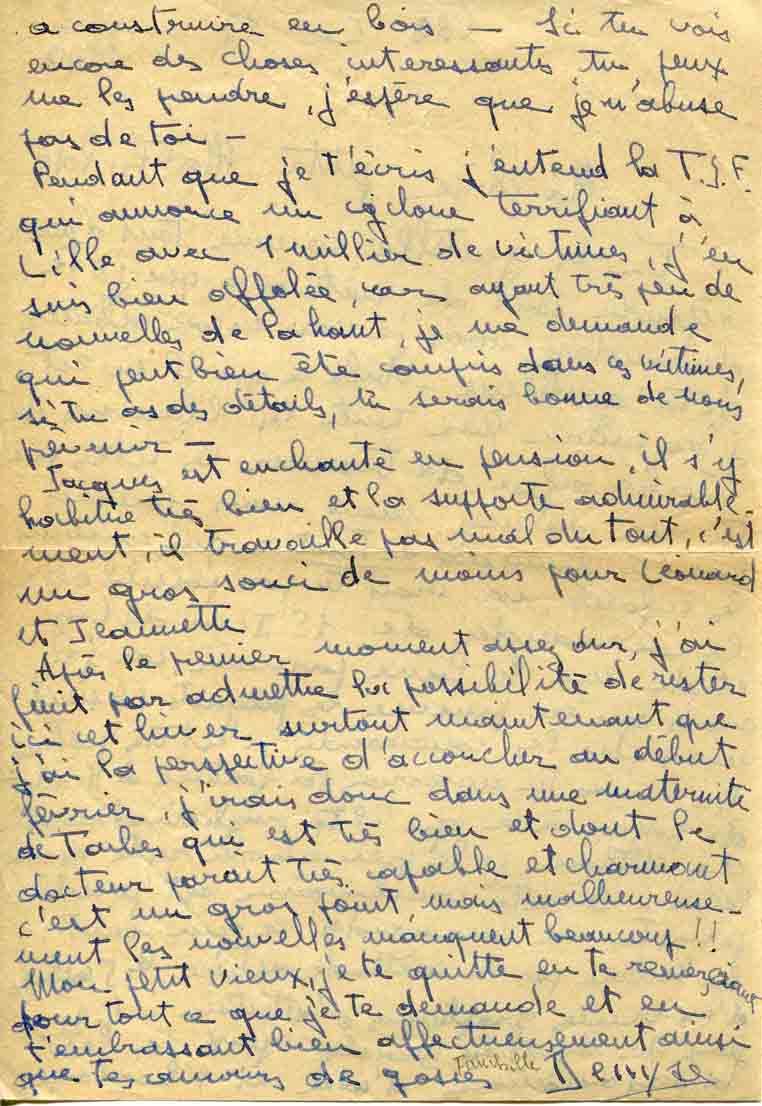 a construire en bois — Si tu vois
encore des choses interessantes tu peux
me les prendre, j'espère que je n'abuse
pas de toi —
Pendant que je t'écris j'entend la T.S.F.
qui annonce un cyclone terrifiant à
Lille avec 1 millier de victimes, j'en
suis bien affolée, car ayant très peu de
nouvelles de làhaut, je me demande
qui peut bien ête compris dans ces victimes,
si tu as des détails, tu serais bonne de nous
prévenir —
Jacques est enchanté en pension, il s'y
habitue très bien et la supporte admirable-
ment, il travaille pas mal du tout, c'est
un gros souci de moins pour Léonard
et Jeannette
Après le premier moment assez dur, j'ai
finit par admettre la possibilité de rester
ici cet hiver surtout maintenant que
j'ai la perspective d'accoucher au début
février, j'irais donc dans une maternité
de Tarbes qui est très bien et dont le
docteur parait très capable et charmant
c'est un gros point mais malheureuse-
ment les nouvelles manquent beaucoup !!
Mon petit vieux, je te quitte en te remerçiant
pour tout ce que je te demande et en
t'embrassant bien affectueusement ainsi
que tes amours de gosses Denyse